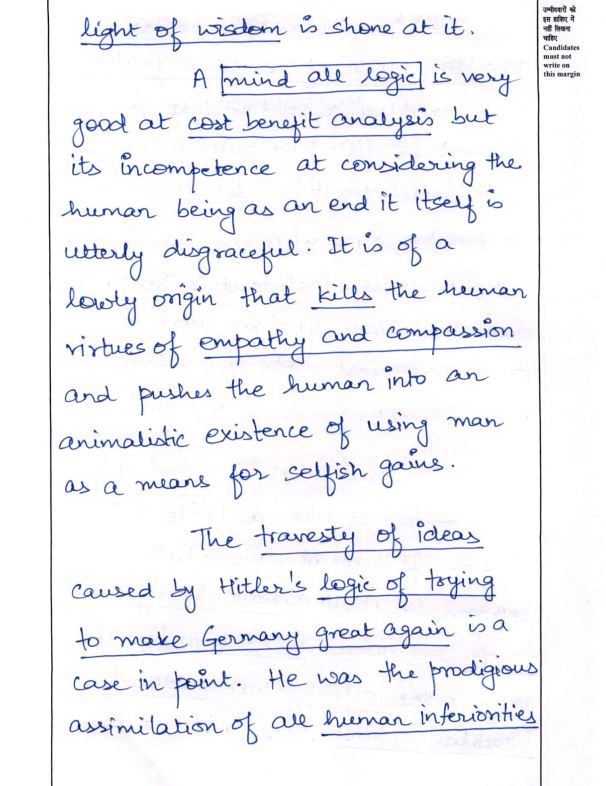 light of wisdom is shone at it.
A mind all logic is very
good at cost benefit analysis but
its incompetence at considering the
human being as an end it itself is
utterly disgraceful. It is of a
lowly origin that kills the human
virtues of empathy and compassion
and pushes the human into an
animalistic existence of using man
as a means for selfish gains.
The travesty of ideas
caused by Hitler's logic of trying
to make Germany great again is a
case in point. He was the prodigious
assimilation of all human inferiorities
उम्मीदवारों को
इस हाशिए में
नहीं लिखना
चाहिए
Candidates
must not
write on
this margin